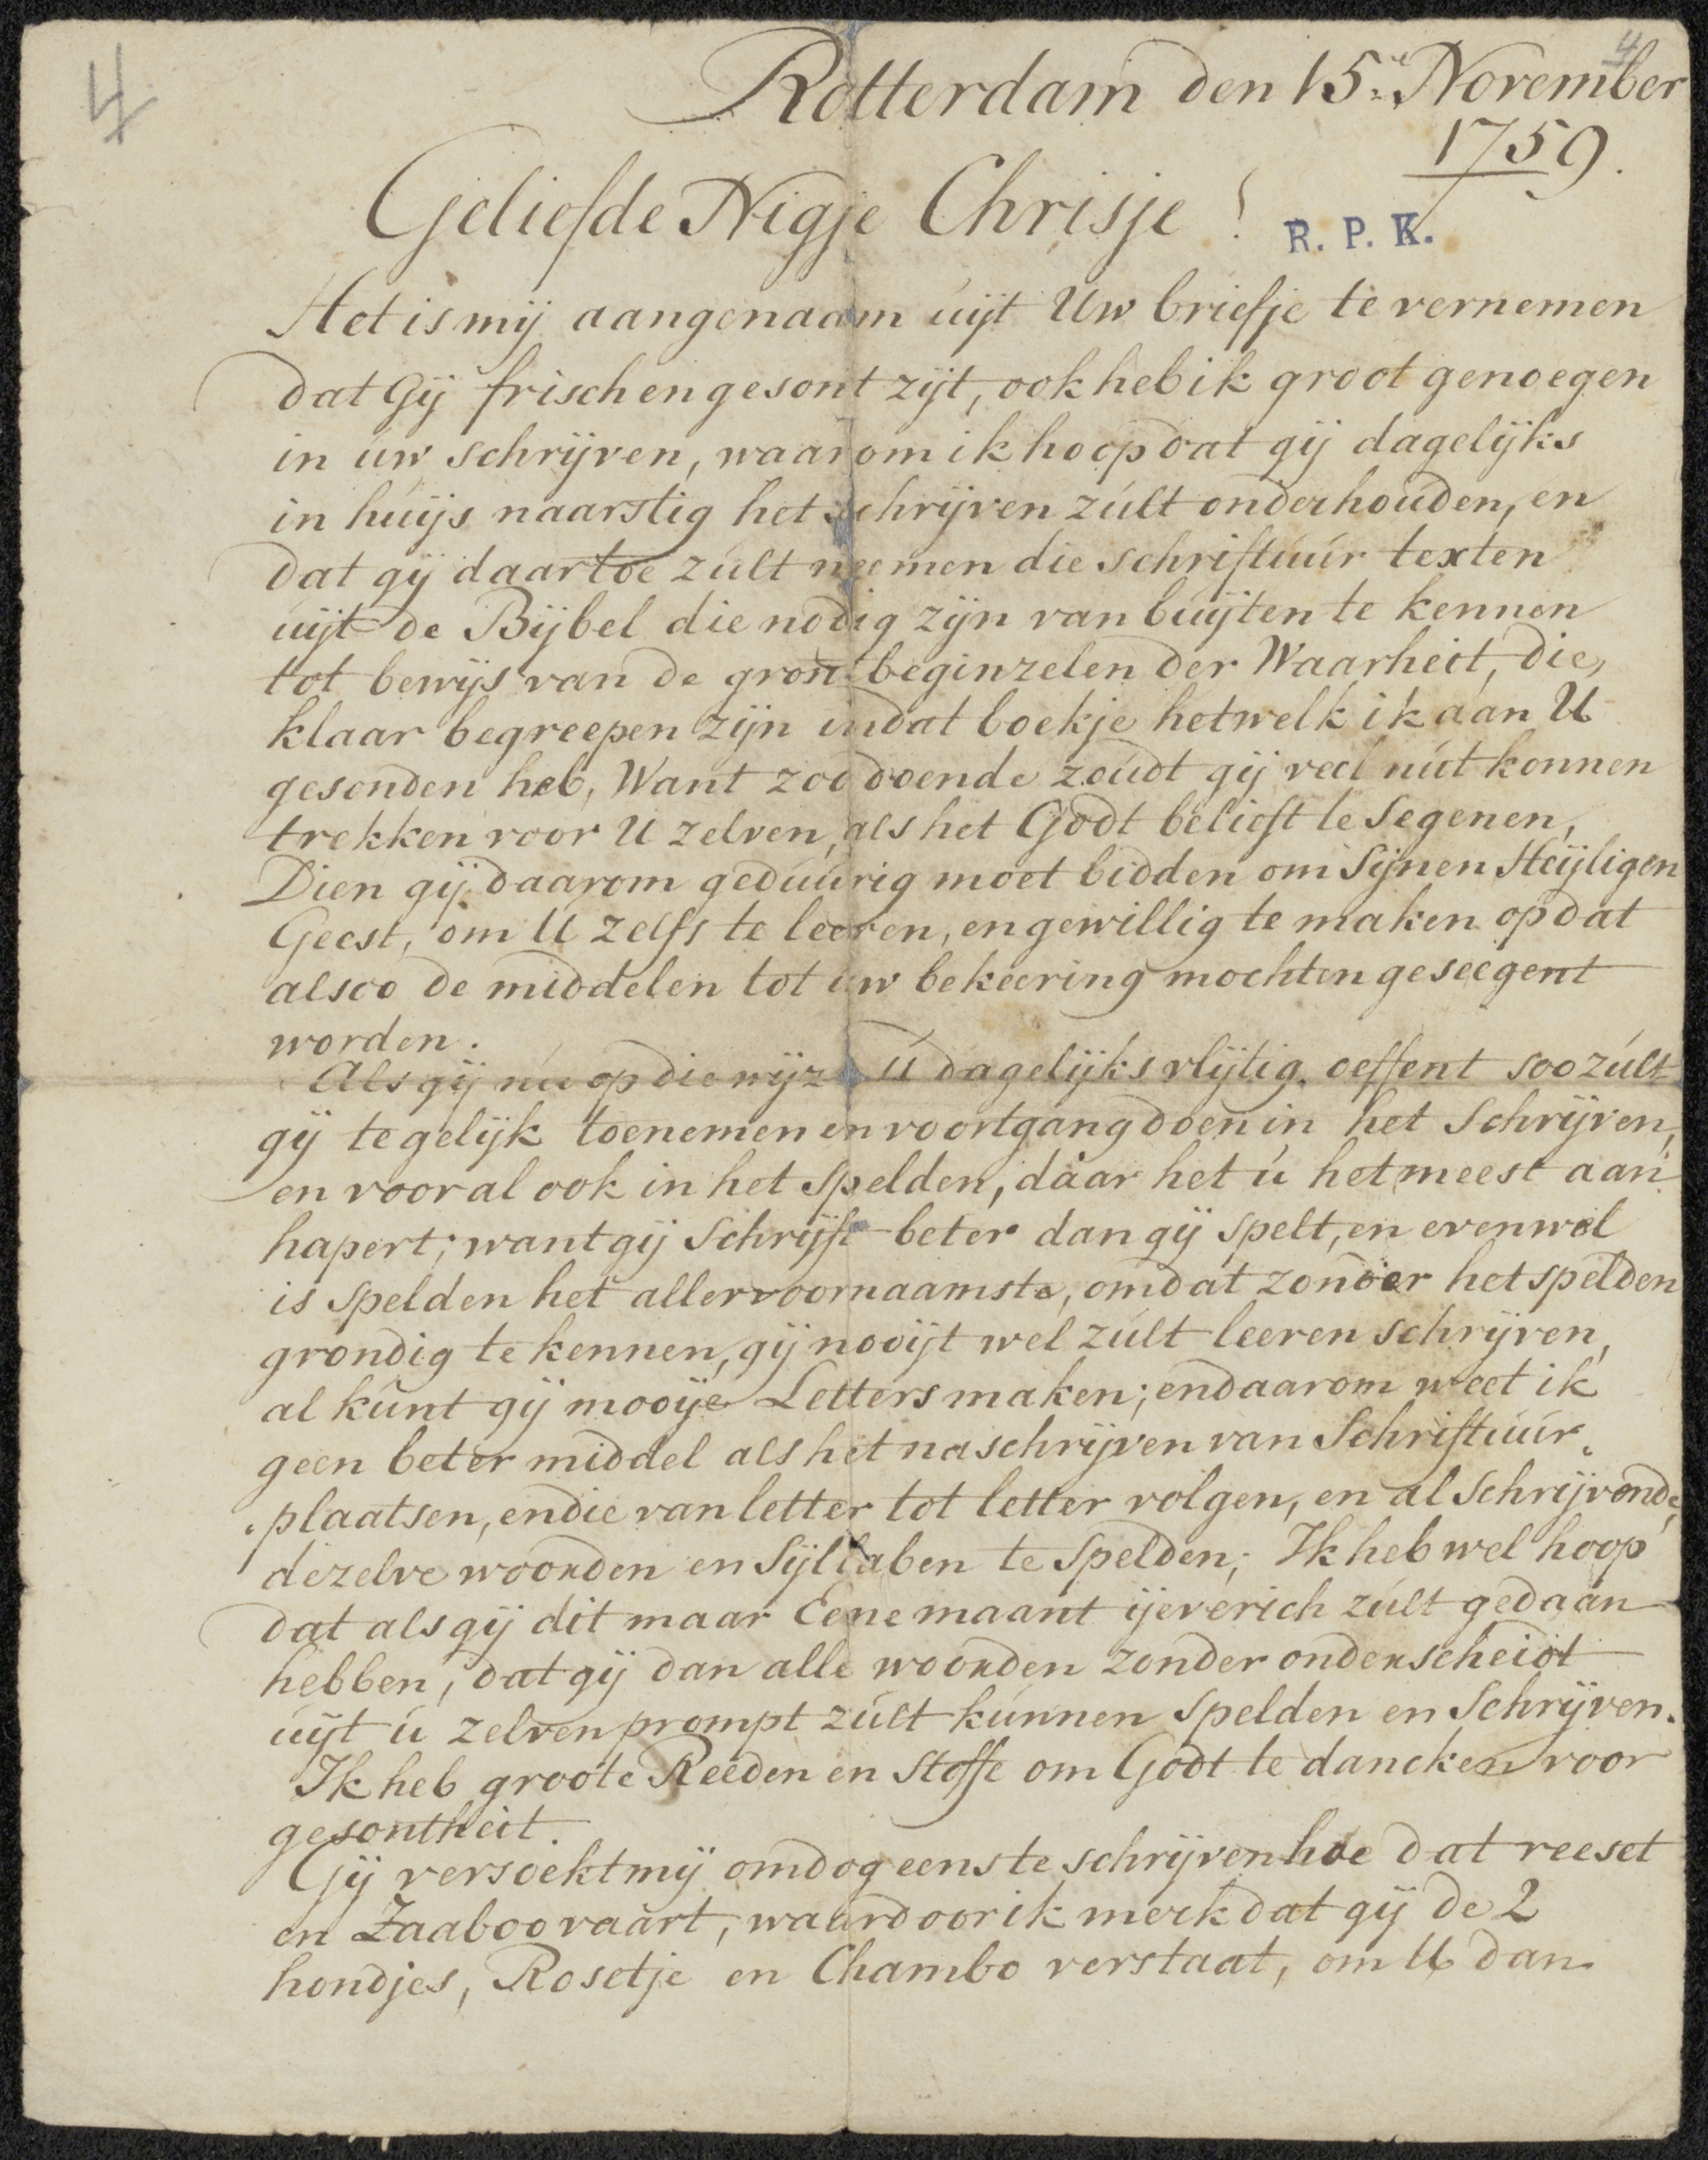 4
4
Rotterdam den 15.e November
1759.
Geliefde Nigje Chrisje!
R. P. K.
Het is mij aangenaam úijt Uw briefje te vernemen
dat Gij frisch en gesont zijt, ook heb ik groot genoegen
in úw schrijven, waarom ik hoop dat gij dagelijks
in húijs naarstig het schrijven zúlt onderhoúden, en
dat gij daartoe zúlt neemen die schriftúúr texten
úijt de Bijbel die nodig zijn van búijten te kennen
tot bewijs van de gront beginzelen der Waarheit, die,
klaar begreepen zijn in dat boekje hetwelk ik aan U
gesonden heb, Want zoo doende zoúdt gij veel nút konnen
trekken voor U zelven, als het Godt belieft te Segenen,
Dien gij daarom gedúúrig moet bidden om Sijnen Heijligen
Geest, om U zelfs te leeren, en gewillig te maken op dat
alsoo de middelen tot úw bekeering mochten geseegent
worden.
Als gij nú op die wijz ú dagelijks vlijtig oeffent soo zúlt
gij te gelijk toenemen en voortgang doen in het Schrijven,
en vooral ook in het Spelden, daar het ú het meest aan
hapert; want gij Schrijft beter dan gij Spelt, en evenwel
is Spelden het allervoornaamste, omdat zonder het spelden
grondig te kennen, gij nooijt wel zúlt leeren schrijven,
al kúnt gij mooije Letters maken; en daarom weet ik
geen beter middel als het naschrijven van Schriftúúr„
„plaatsen, en die van letter tot letter volgen, en al Schrijvende,
dezelve woorden en Sijllaben te Spelden; Ik heb wel hoop
dat als gij dit maar Eene maant ijeverich zúlt gedaan
hebben, dat gij dan alle woorden zonder onderscheidt
úijt ú zelven prompt zúlt kúnnen Spelden en Schrijven.
Ik heb groote Reeden en Stoffe om Godt te dancken voor
gesontheit.
Gij versoekt mij om dog eens te schrijven hoe dat reeset
en Zaaboo vaart, waardoor ik merk dat gij de 2
hondjes, Rosetje en Chambo verstaat, om U dan